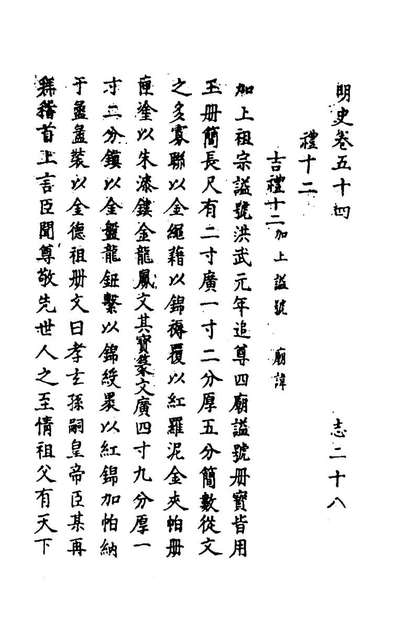 明史卷五十四　志二十八
禮十二
吉禮十二加上謚號　廟諱
加上祖宗謚號洪武元年追尊四廟謚號冊寶皆用
玉冊簡長尺有二寸廣一寸二分厚五分簡數從文
之多寡聯以金繩藉以錦褥覆以紅羅泥金夾帕冊
匣塗以朱漆鏤金龍鳳文其寶篆文廣四寸九分厚一
寸二分鑲以金盤龍鈕繫以錦綬裹以紅錦加帕納
于盝盝裝以金德祖冊文曰孝玄孫嗣皇帝臣某再
拜稽首上言臣聞尊敬先世人之至情祖父有天下